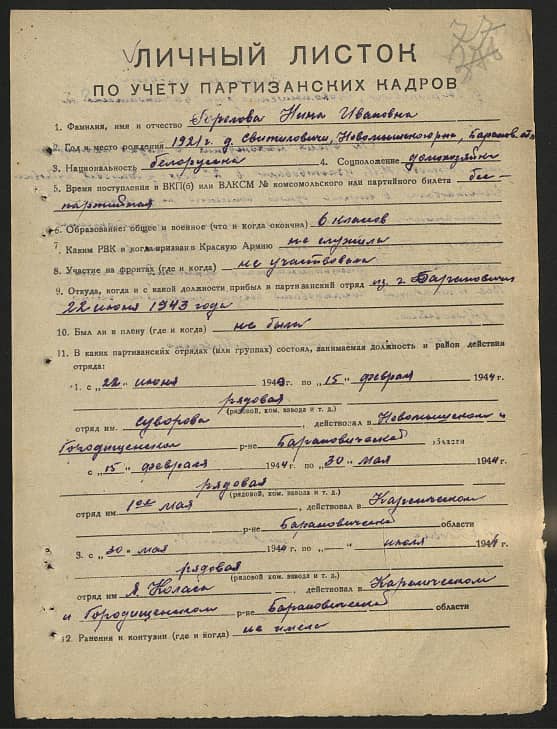 ЛИЧНЫЙ ЛИСТОК
ПО УЧЕТУ ПАРТИЗАНСКИХ КАДРОВ
1. Фамилия, имя и отчество Горелова Нина Ивановна
2. Год и место рождения 1921 г. д. Свитиловичи, Новомышск. р-на, Баранов. обл.
3. Национальность белоруска 4. Соцположение домохозяйка
5. Время поступления в ВКП(б) или ВЛКСМ № комсомольского или партийного билета бес-
партийная
6. Образование: общее и военное (что и когда окончил) 6 классов
7. Каким РВК и когда призван в Красную Армию не служила
8. Участие на фронтах (где и когда) не участвовала
9. Откуда, когда и с какой должности прибыл в партизанский отряд из г. Барановичи
22 июня 1943 года
10. Был ли в плену (где и когда) не была
11. В каких партизанских отрядах (или группах) состоял, занимаемая должность и район действия
отряда:
1. с „22“ июня 1943 г. по „15“ февраля 1944 г.
рядовая
(рядовой, ком. взвода и т. д.)
отряд им. Суворова, действовал в Новомышском и
Городищенском р-не Барановической области
с „15“ февраля 1944 г. по „30“ мая 1944 г.
рядовая
(рядовой, ком. взвода и т. д.)
отряд им. 1ое мая, действовал в Кареличском
р-не Барановической области
3. с „30“ мая 1944 г. по „ “ июля 1944 г.
рядовая
(рядовой, ком. взвода и т. д.)
отряд им. Я. Коласа, действовал в Кареличском
и Городищенском р-не Барановической области
12. Ранения и контузии (где и когда) не имела